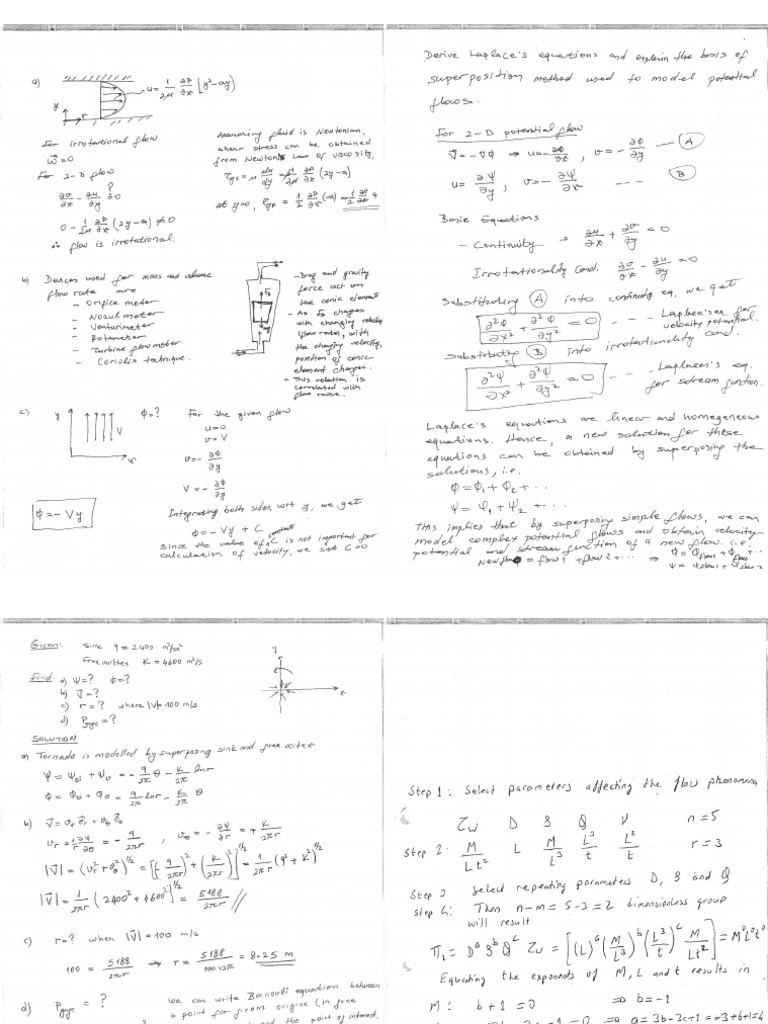 a)
u = 1/2μ ∂P/∂x [y² - ay)
y
x
For irrotational flow
w⃗ = 0
For 2-D flow
∂v/∂x - ∂u/∂y ?= 0
0 - 1/2μ ∂P/∂x (2y - a) ≠ 0
∴ flow is irrotational.
Assuming fluid is Newtonian,
shear stress can be obtained
from Newton's Law of viscosity,
τyx = μ du/dy = μ/2μ ∂P/∂x (2y - a)
at y=0,
b) Devices used for mass and volume
flow rate are
- Orifice meter
- Nozul meter
- Venturimeter
- Rotameter
- Turbine flowmeter
- Coriolis technique.
- Drag and gravity
force act on
the conic element
- As FD changes
with changing velocity
(flow rate), with
the changing velocity,
position of conic
element changes.
- This relation is
correlated with
flow rate.
c)
y
V
x
φ = ?
For the given flow
u = 0
v = V
v = - ∂φ/∂y
V = - ∂φ/∂y
Integrating both sides, wrt y, we get
φ = - Vy + C
constant
φ = - Vy
since the value of C is not important for
calculation of velocity, we set C=0
Derive Laplace's equations and explain the basis of
superposition method used to model potential
flows.
For 2-D potential flow
V⃗ = -∇φ → u = - ∂φ/∂x , v = - ∂φ/∂y — A
u = ∂Ψ/∂y , v = - ∂Ψ/∂x - - - B
Basic Equations
- Continuity → ∂u/∂x + ∂v/∂y = 0
Irrotationality Cond. ∂v/∂x - ∂u/∂y = 0
Substituting A into continuity eq. we get
∂²φ/∂x² + ∂²φ/∂y² = 0 - - - Laplace's eq. for
velocity potential.
Substituting B into irrotationality cond.
∂²Ψ/∂x² + ∂²Ψ/∂y² = 0 - - Laplace's eq.
for stream function.
Laplace's equations are linear and homogeneous
equations. Hence, a new solution for these
equations can be obtained by superposing the
solutions, i.e.
φ = φ1 + φ2 + ···
Ψ = Ψ1 + Ψ2 + ···
This implies that by superposing simple flows, we can
model complex potential flows and obtain velocity
potential and stream function of a new flow. i.e.
New flow = flow 1 + flow 2 + ··· ⇒ φ = φflow1 + φflow2 + ···
Ψ = Ψflow1 + Ψflow2
Given: Sink q = 2400 m²/s
Free vortex K = 4600 m²/s
Find: a) Ψ = ? φ = ?
b) V⃗ = ?
c) r = ? where |V| = 100 m/s
d) Peye = ?
y
x
SOLUTION
a) Tornado is modelled by superposing sink and free vortex.
Ψ = Ψsi + Ψv = - q/2π θ - K/2π lnr
φ = φsi + φv = q/2π lnr - K/2π θ
b) V⃗ = vr e⃗r + vθ e⃗θ
vr = 1/r ∂Ψ/∂θ = - q/2πr , vθ = - ∂Ψ/∂r = + K/2πr
|V⃗| = (vr² + vθ²)^1/2 = [(- q/2πr)² + (K/2πr)²]^1/2 = 1/2πr (q² + K²)^1/2
|V⃗| = 1/2πr (2400² + 4600²)^1/2 = 5188/2πr
c) r = ? when |V⃗| = 100 m/s
100 = 5188/2πr → r = 5188/100×2π = 8.25 m
d) Peye = ?
we can write Bernoulli equation between
a point far from origine (in free
and the point of interest,
Step 1 : Select parameters affecting the flow phenomena
τw D ρ Q ν n = 5
Step 2 : M/Lt² L M/L³ L³/t L²/t r = 3
Step 3 Select repeating parameters D, ρ and Q
Step 4: Then n-m = 5-3 = 2 dimensionless group
will result
Π1 = D^a ρ^b Q^c τw = [(L)^a (M/L³)^b (L³/t)^c M/Lt²] = M⁰L⁰t⁰
Equating the exponents of M, L and t results in
M: b + 1 = 0 ⇒ b = -1
⇒ a = 3b-3c+1 = -3+6+1 = 4